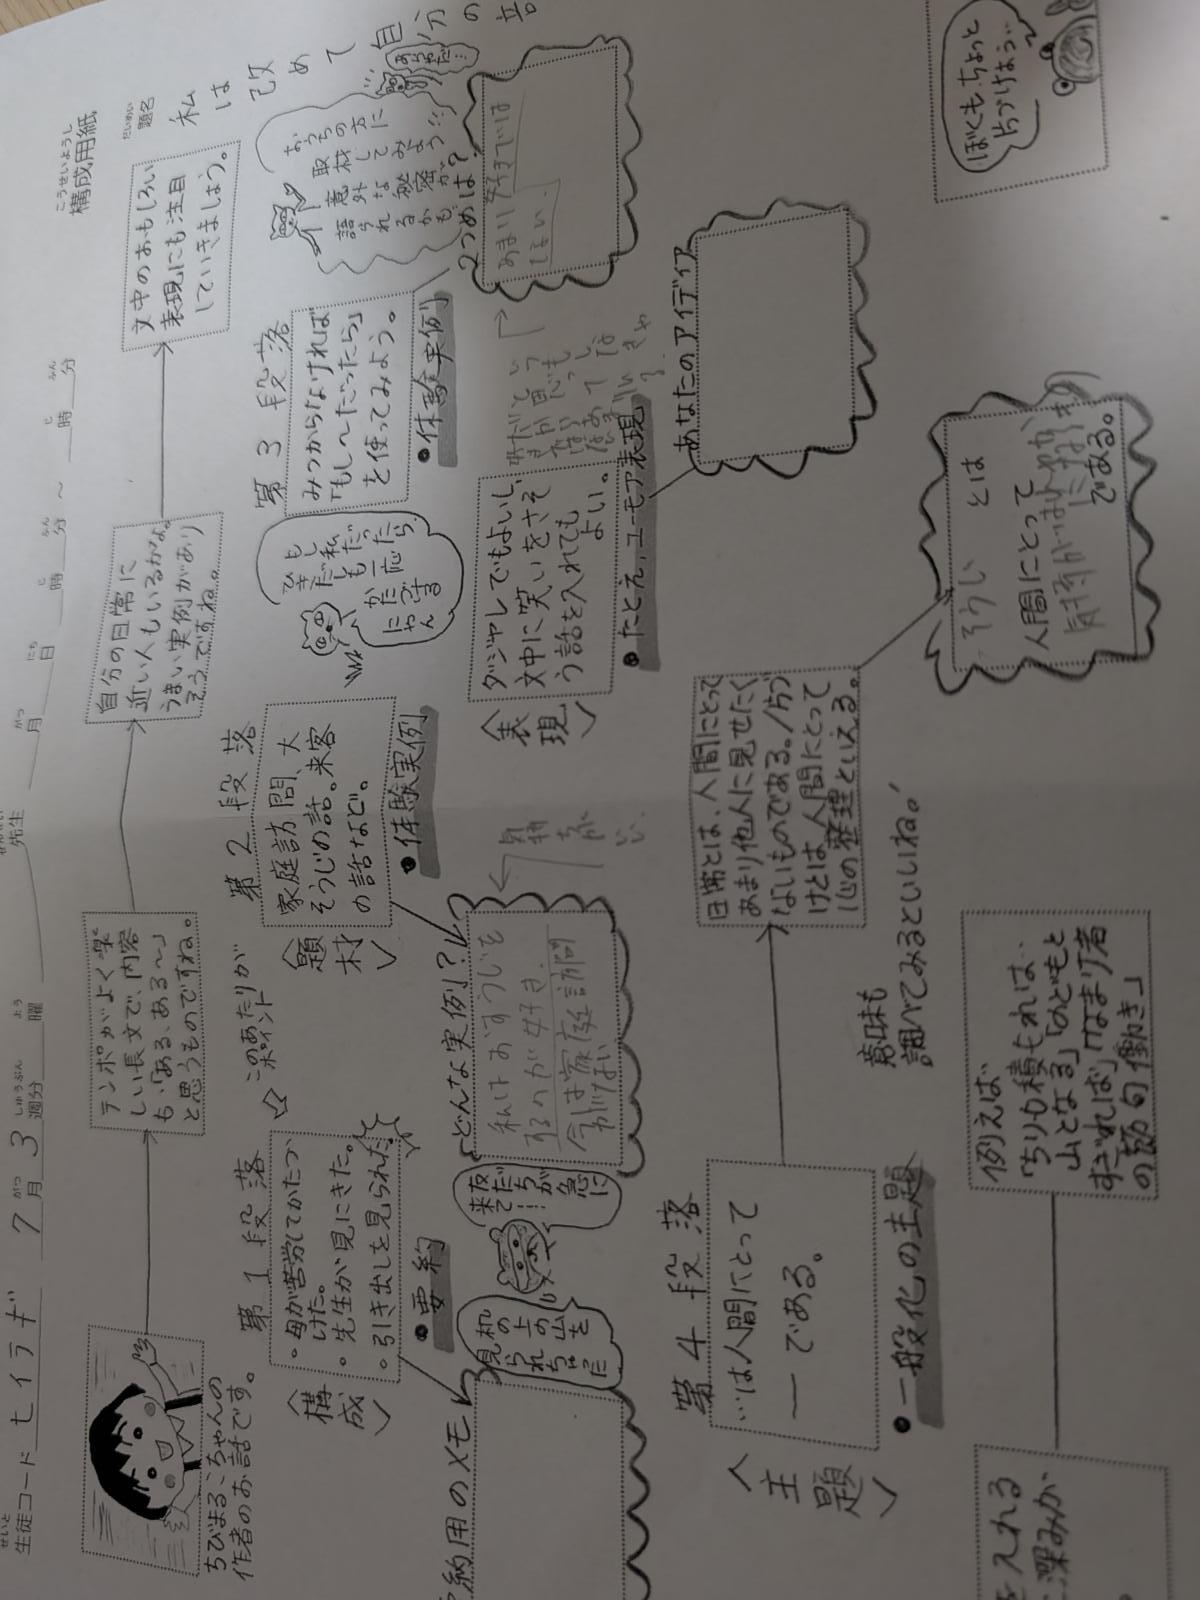 せいと
生徒コード ヒイラギ 7月 3週分 曜 先生 月 日 時 分 〜 時 分
こうせいようし
構成用紙
だいめい
題名
私は改めて自分の
ちびまるこちゃんの
作者のお話です。
テンポがよく楽
しい長文で、内容
も、「ある、ある〜」
と思うものですね。
自分の日常に
近い人もいるかな。
うまい実例があり
そうですね。
文中のおもしろい
表現にも注目
していきましょう。
第1段落
〈構成〉
・母が苦労してかたづ
けた。
・先生が見にきた。
・引き出しを見られた
●要約
このあたりが
ポイント
机の上の山を
見られちゃだ
メ
夜だちが急に
来て…
第2段落
〈題材〉
家庭訪問、大
そうじの話。来客
の話など。
●体験実例
どんな実例?
私はおそうじを
するのが好き.
今は家庭訪問
がない
第3段落
みつからなければ
「もし〜だったら」
を使ってみよう。
●体験実例
もし私だったら
ひきだしも一応
かたづける
にゃん
おうちの方に
取材してみよう
意外な秘密が
語られるかも
2つめは?
あまり好きでは
ない.
〈表現〉
ダジャレでもよいし、
文中に笑いをさそ
う話を入れても
よい。
●たとえ、ユーモア表現
あなたのアイデア
第4段落
〈主題〉
…は人間にとって
― である。
●一般化の主題
日常とは、人間にとって
あまり他人に見せたく
ないものである。/片づ
けとは、人間にとって
心の整理といえる。
そうじ とは
人間にとって
である。
意味も
調べてみるといいね。
例えば
「ちりも積もれば…
山となる」「のどもと
すぎれば」「なまけ者
の節句働き」
を入れる
深みが
ぼくも、ちょっと
片づけよう…